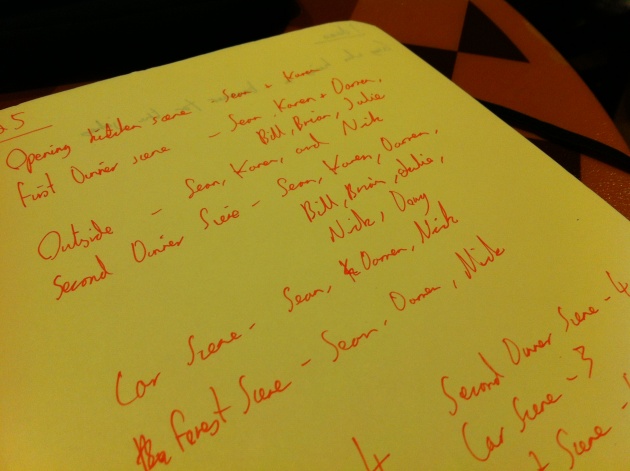 25
Opening kitchen scene - Sean + Karen
First Dinner scene - Sean, Karen + Darren,
Bill, Brian, Julie
Outside - Sean, Karen, and Nick
Second Dinner Scene - Sean, Karen, Darren,
Bill, Brian, Julie,
Nick, Doug
Car Scene - Sean, Darren, Nick
Forest Scene - Sean, Darren, Nick
4
Second Dinner Scene - 4
Car Scene - 3
Scene -